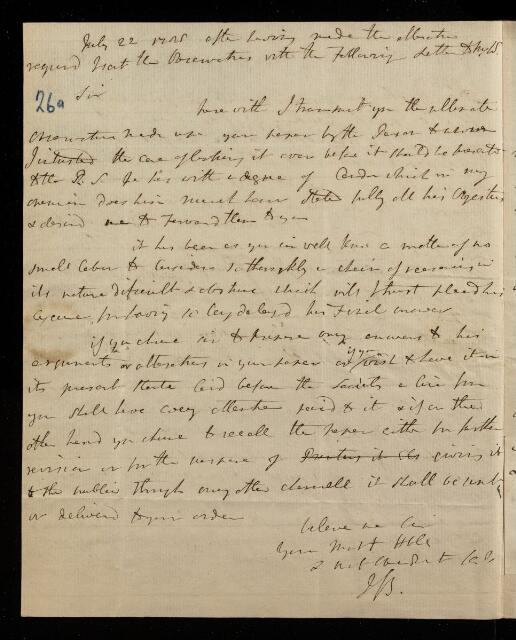 July 22 1785 after having made the alteration
required I sent the Observations with the following Letter to
26a
Sir
here with I transmit you the ultimate
observations made upon your paper by the Person to whom
I intrusted the care of looking it over before it should be presented
to the R. S. he has with a degree of Candor which in my
opinion does him much honor stated fully all his objections
& desired me to forward them to you
it has been as you well know a matter of no
small labor to consider so thoroughly a chain of reasoning in
its nature difficult & abstruse which will I trust plead his
excuse for having so long delayd his final answer
if you chuse Sir to prepare any answers to his
arguments or alterations in your paper or if you wish to have it in
its present state laid before the Society a line from
you shall have every attention paid to it & if on the
other hand you chuse to recall the paper either for further
revision or for the purpose of Printing it giving it
to the publick through any other channell it shall be sent
or deliverd to your order
believe me Sir
Your Most Hble
& Obedient
JB.